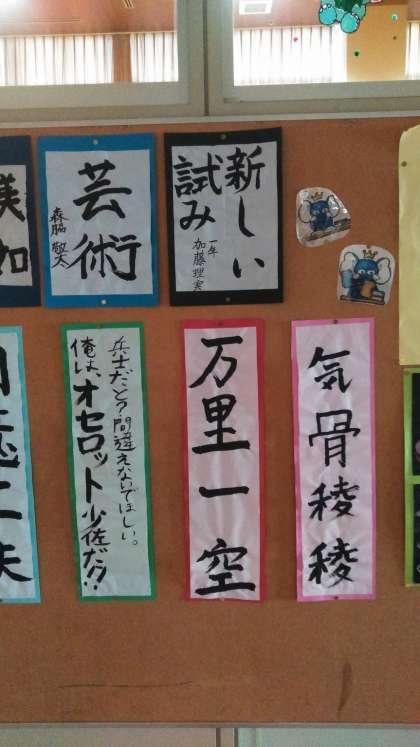 新しい
試み
一年
加藤理実
芸術
森脇 敬太
気骨稜稜
万里一空
兵士だと?間違えないでほしい。
俺は、オセロット少佐だ!?